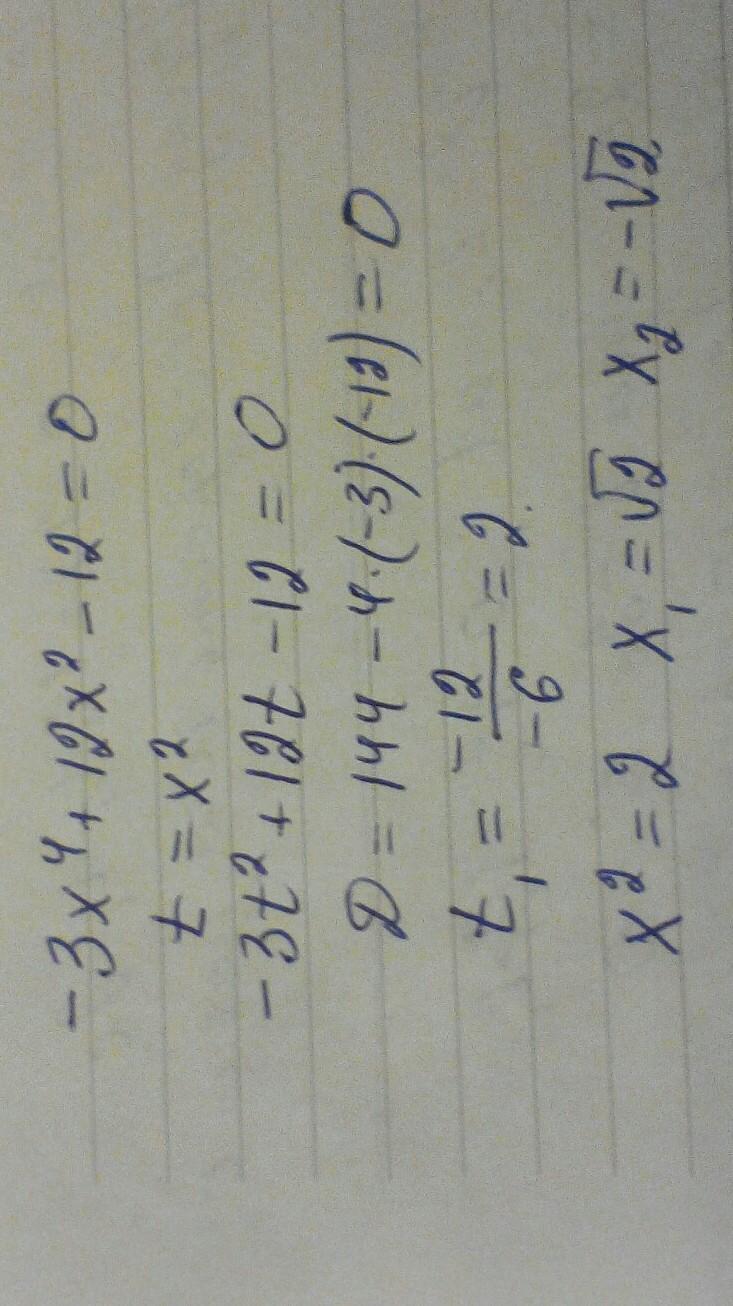 -3x⁴+12x²-12=0
t=x²
-3t²+12t-12=0
D=144-4·(-3)·(-12)=0
t₁=-12/-6=2.
x²=2 x₁=√2 x₂=-√2